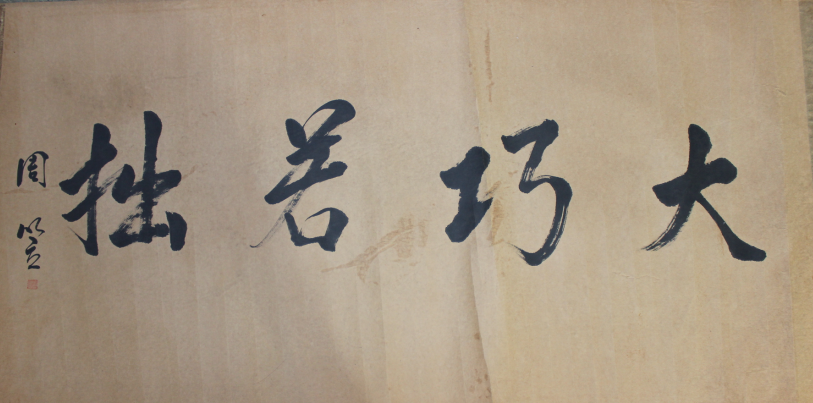 大巧若拙
周笠